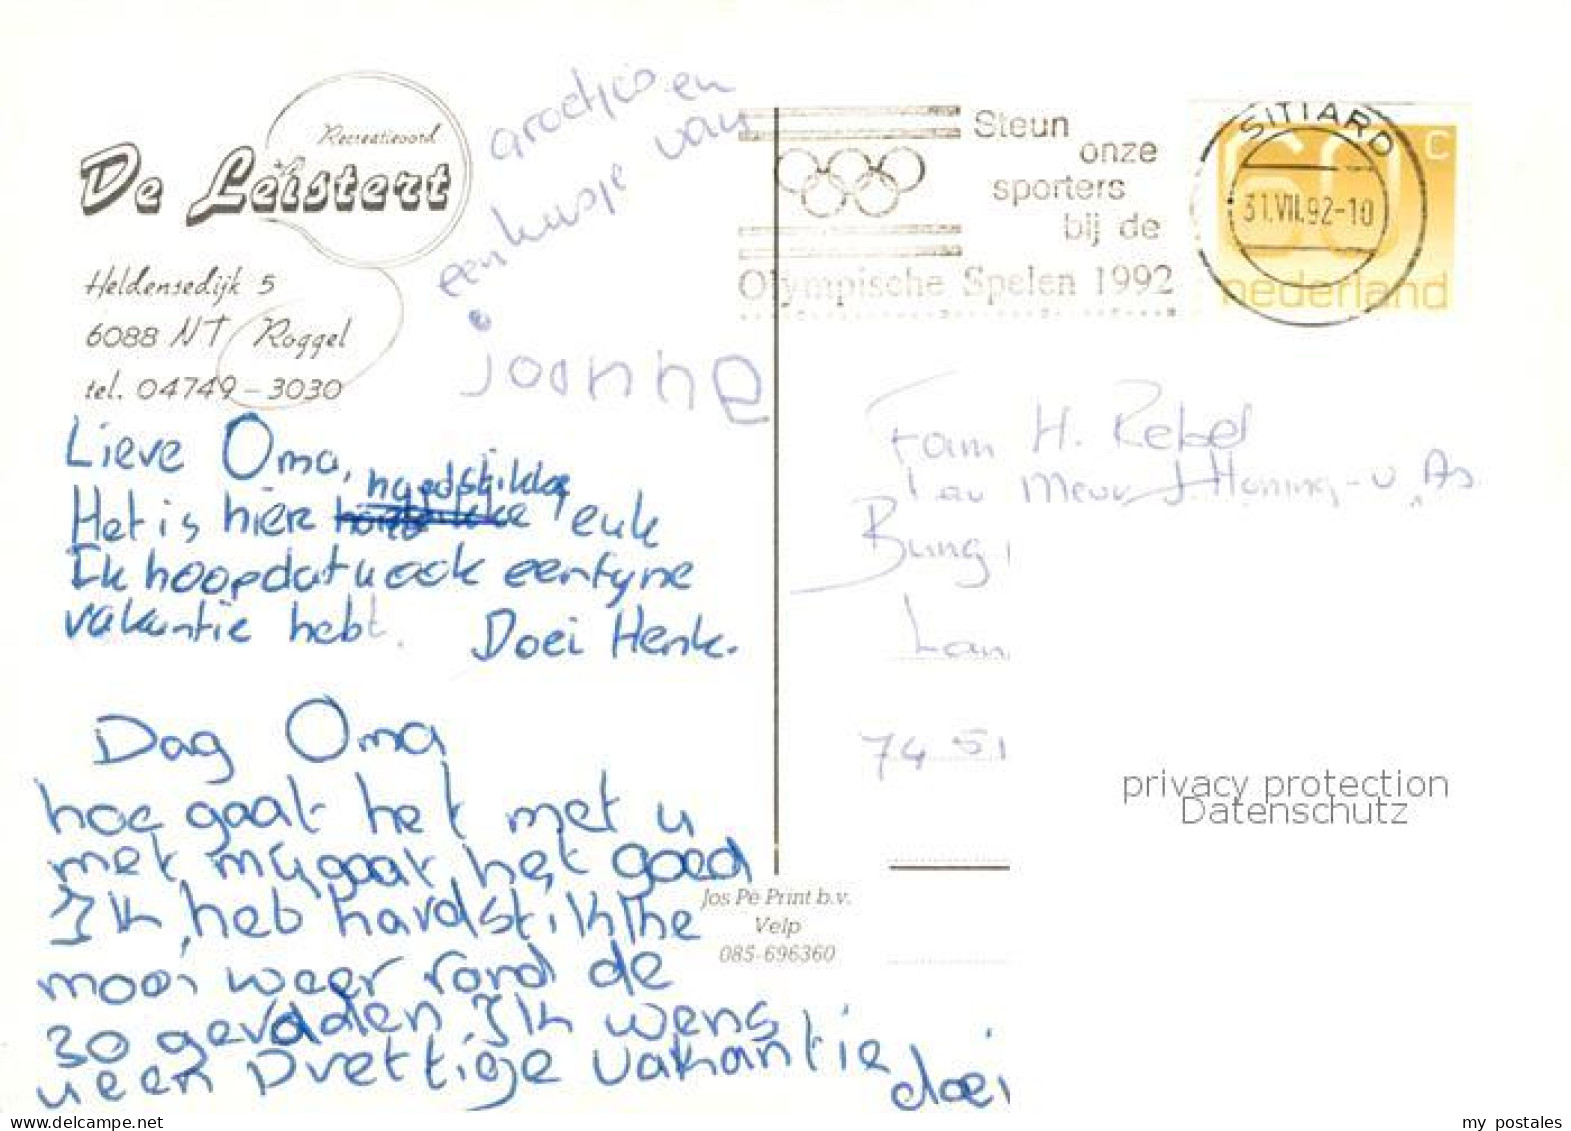 Recreatieoord
De Leistert
Heldensedijk 5
6088 NT Roggel
tel. 04749-3030
Groetjes en
een kusje van
joanne
Lieve Oma,
Het is hier hardstikke leuk
Ik hoop dat u ook een fijne
vakantie hebt. Doei Henk.
Dag Oma
hoe gaat het met u
met mij gaat het goed
Ik heb hardstikke
mooi weer rond de
30 Ik wens
u een Prettige vakantie doei
Steun
onze
sporters
bij de
Olympische Spelen 1992
SITTARD
31.VII.92-10
60 c
nederland
Fam H. Rebel
Meur J. Honing-v As
Bung
Lan
74 51
privacy protection
Datenschutz
Jos Pé Print b.v.
Velp
085-696360
www.delcampe.net
my_postales